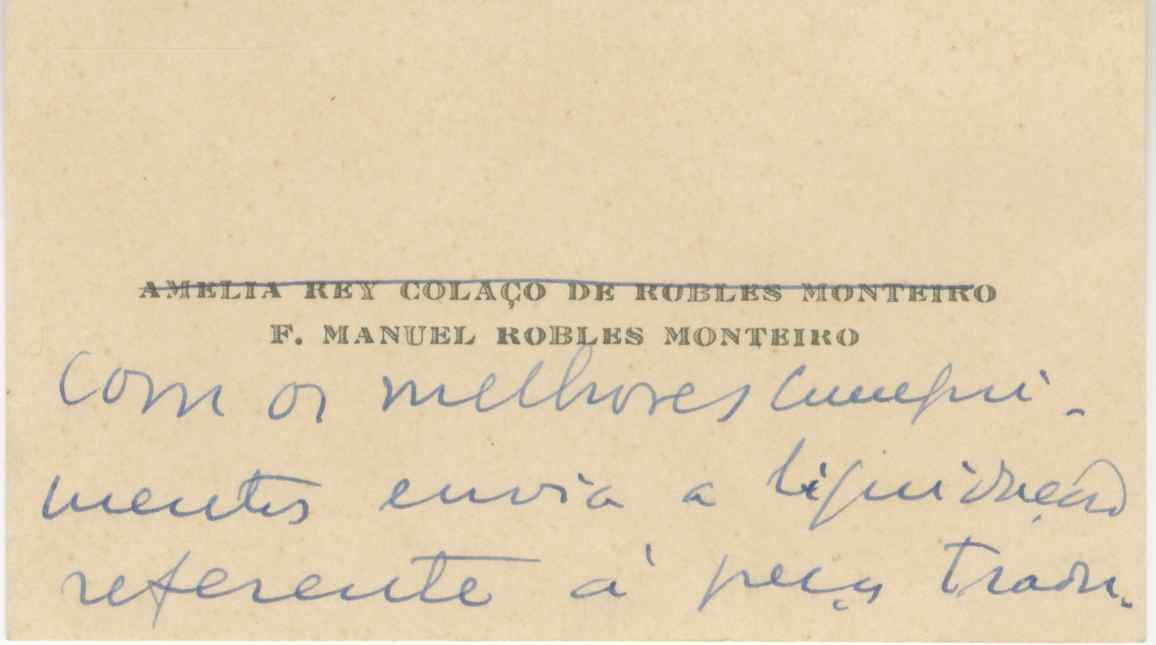 AMELIA REY COLAÇO DE ROBLES MONTEIRO
F. MANUEL ROBLES MONTEIRO
Com os melhores cumpri-
mentos envia a liquidação
referente á peça tradu-